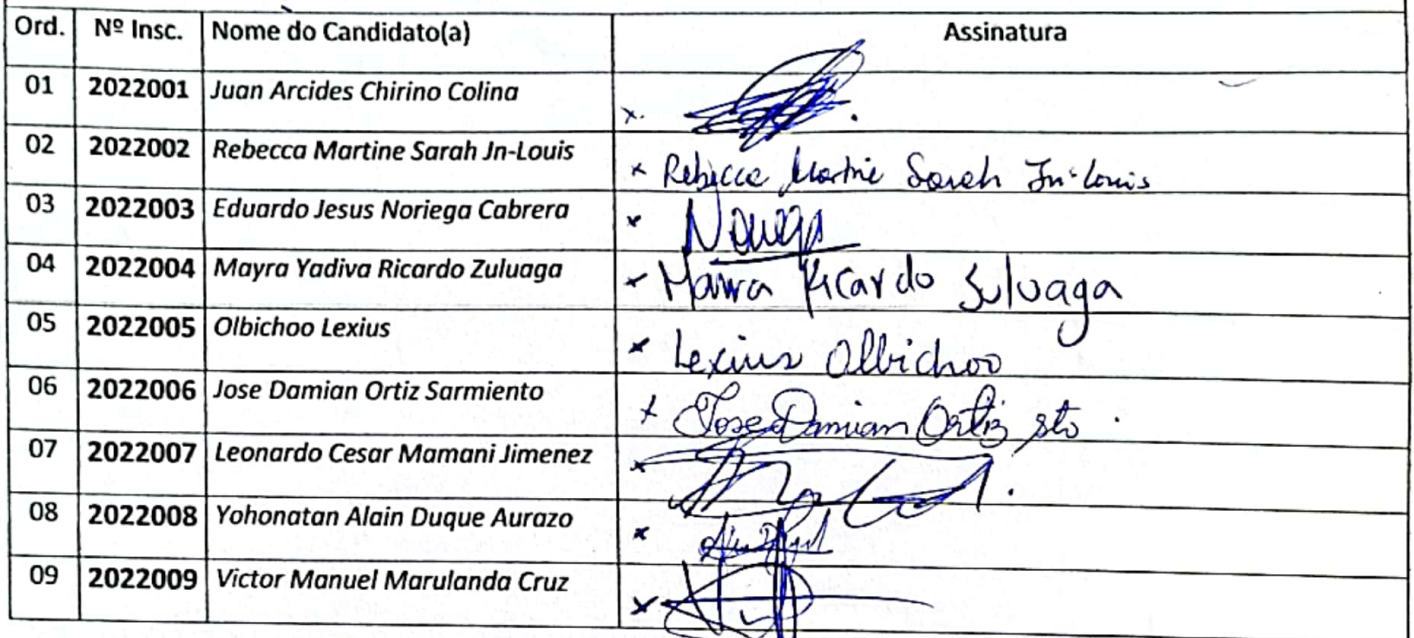 Ord. Nº Insc. Nome do Candidato(a) Assinatura
01 2022001 Juan Arcides Chirino Colina x.
02 2022002 Rebecca Martine Sarah Jn-Louis x Rebecca Martine Sarah Jn-Louis
03 2022003 Eduardo Jesus Noriega Cabrera x Noriega
04 2022004 Mayra Yadiva Ricardo Zuluaga x Mayra Ricardo Zuluaga
05 2022005 Olbichoo Lexius x Lexius Olbichoo
06 2022006 Jose Damian Ortiz Sarmiento x Jose Damian Ortiz sto.
07 2022007 Leonardo Cesar Mamani Jimenez x
08 2022008 Yohonatan Alain Duque Aurazo x
09 2022009 Victor Manuel Marulanda Cruz x